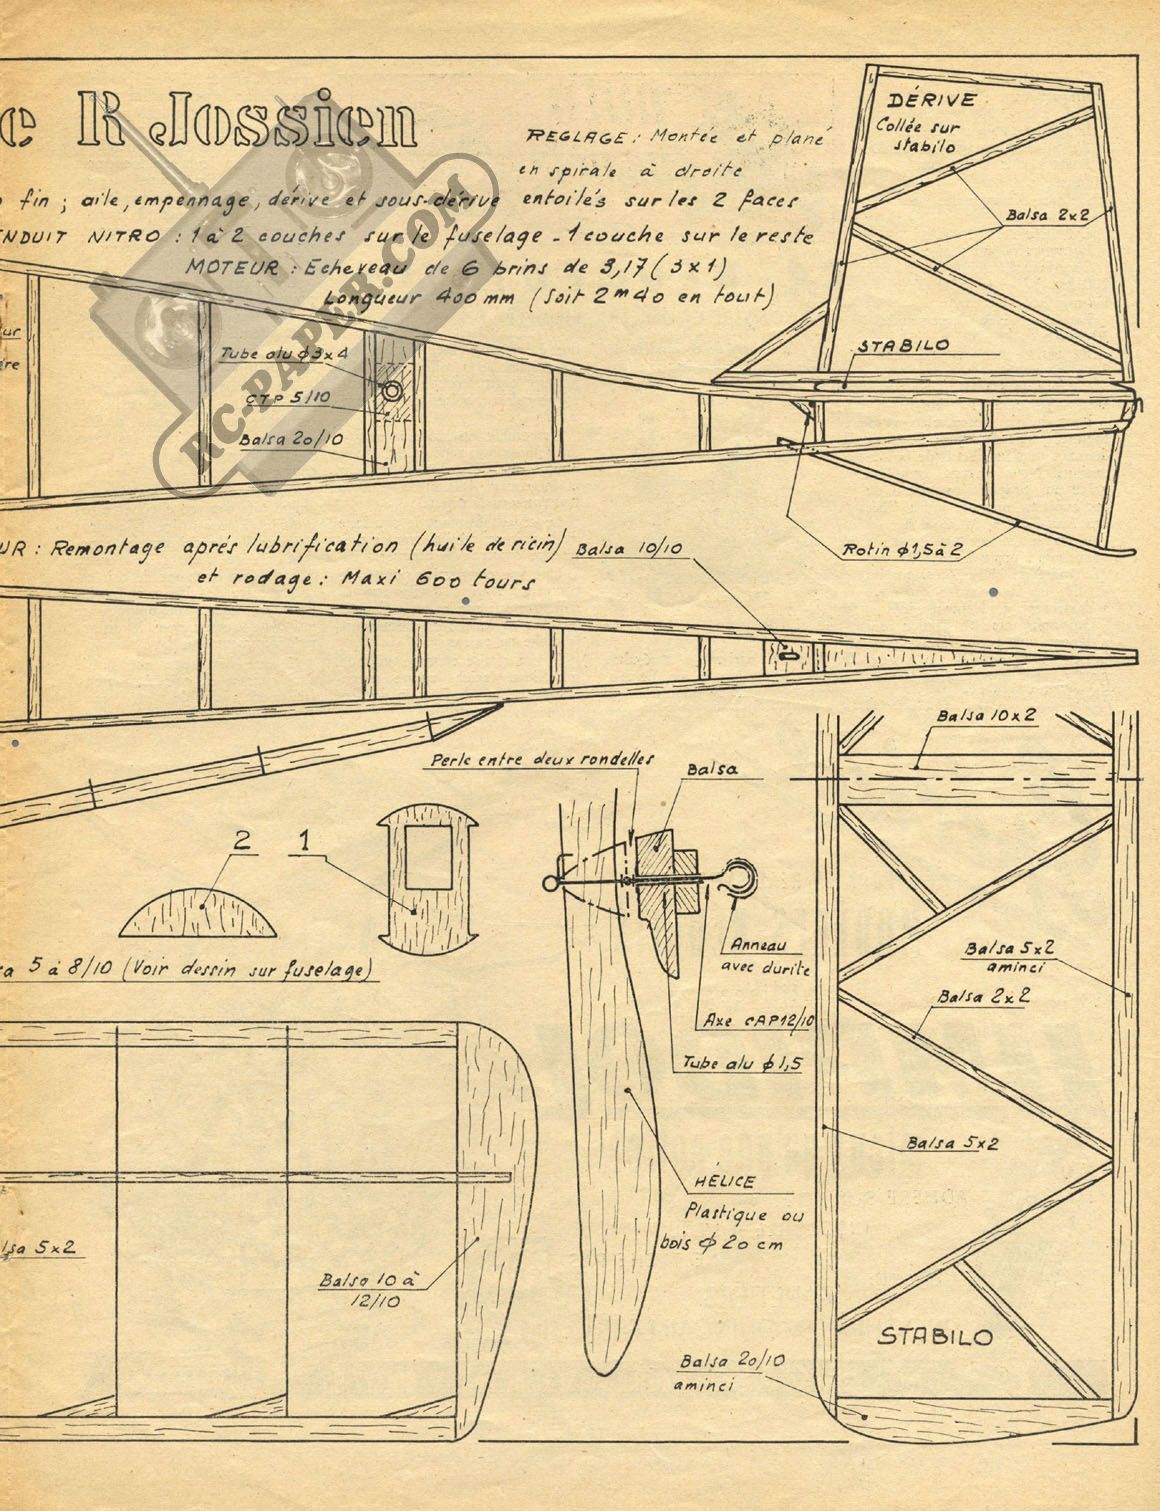 e R Jossien
DÉRIVE
Collée sur
stabilo
RÉGLAGE : Montée et plané
en spirale à droite
fin ; aile, empennage, dérive et sous-dérive entoilés sur les 2 faces
Balsa 2x2
ENDUIT NITRO : 1 à 2 couches sur le fuselage - 1 couche sur le reste
MOTEUR : Echeveau de 6 brins de 3,17 (3x1)
Longueur 400 mm (soit 2m40 en tout)
STABILO
Tube alu ϕ 3x4
CTP 5/10
Balsa 20/10
RC-PAPER.COM
UR : Remontage aprés lubrification (huile de ricin)
et rodage : Maxi 600 tours
Balsa 10/10
Rotin ϕ 1,5 à 2
Balsa 10x2
Perle entre deux rondelles
Balsa
2 1
sa 5 à 8/10 (Voir dessin sur fuselage)
Anneau
avec durite
Balsa 5x2
aminci
Balsa 2x2
Axe CAP 12/10
Tube alu ϕ 1,5
Balsa 5x2
HÉLICE
Plastique ou
bois ϕ 20 cm
lsa 5x2
Balsa 10 à
12/10
STABILO
Balsa 20/10
aminci